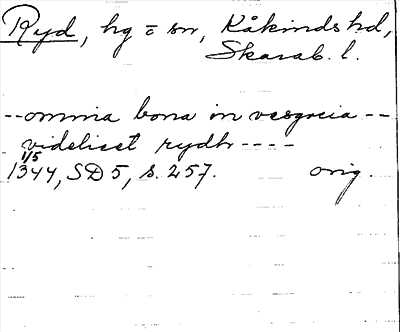 Ryd, hg = sn, Kåkinds hd,
Skarab. l.
-- omnia bona in vesgocia --
videlicet rydh ----
1/5
1344, SD 5, s. 257. orig.